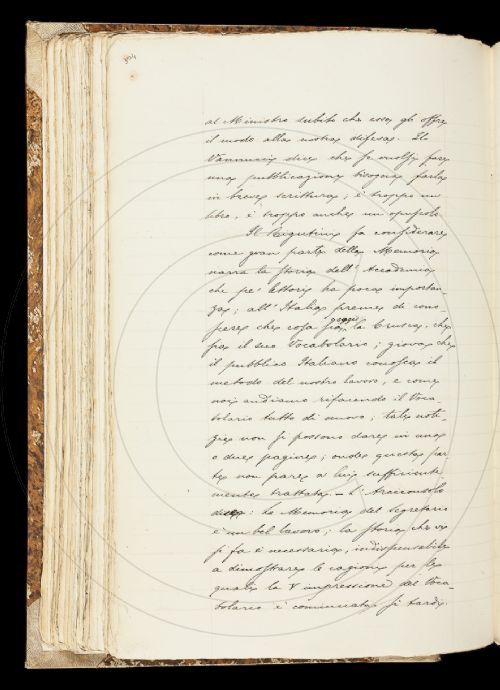 304
al Ministro subito che esso gli offre
il modo alla nostra difesa. Il
Vannucci dice che se vuolsi fare
una pubblicazione bisogna farla
in breve scrittura; è troppo un
libro, è troppo anche un opuscolo.
Il Rigutini fa considerare
come gran parte della Memoria
narra la storia dell'Accademia
che pe' lettori ha poca importan-
za; all'Italia preme di cono-
scere che cosa fa oggi la Crusca, che
fa il suo Vocabolario; giova che
il pubblico Italiano conosca il
metodo del nostro lavoro, e come
noi andiamo rifacendo il Voca-
bolario tutto di nuovo; tale noti-
zie non si possono dare in una
o due pagine; onde questa par-
te non pare a lui sufficiente
mente trattata. — L'Arciconsolo
dice: la Memoria del Segretario
è un bel lavoro; la storia che vi
si fa è necessaria, indispensabile
a dimostrare le cagioni per le
quali la V impressione del Voca-
bolario è cominciata sì tardi.